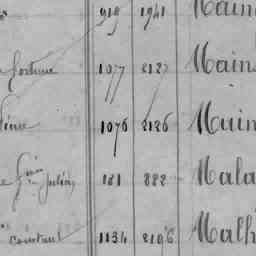 919 1941 Main
fortune 1077 2127 Main
1076 2126 Main
Julien 181 222 Mala
constant 1134 2196 Malh